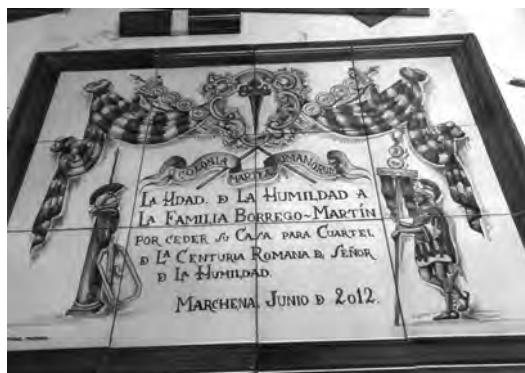 COLONIA MARTIA ROMANORUM
LA HDAD. D LA HUMILDAD A
LA FAMILIA BORREGO~MARTÍN
POR CEDER SU CASA PARA CUARTEL
D LA CENTURIA ROMANA D. SEÑOR
D LA HUMILDAD.
MARCHENA, JUNIO D 2012.